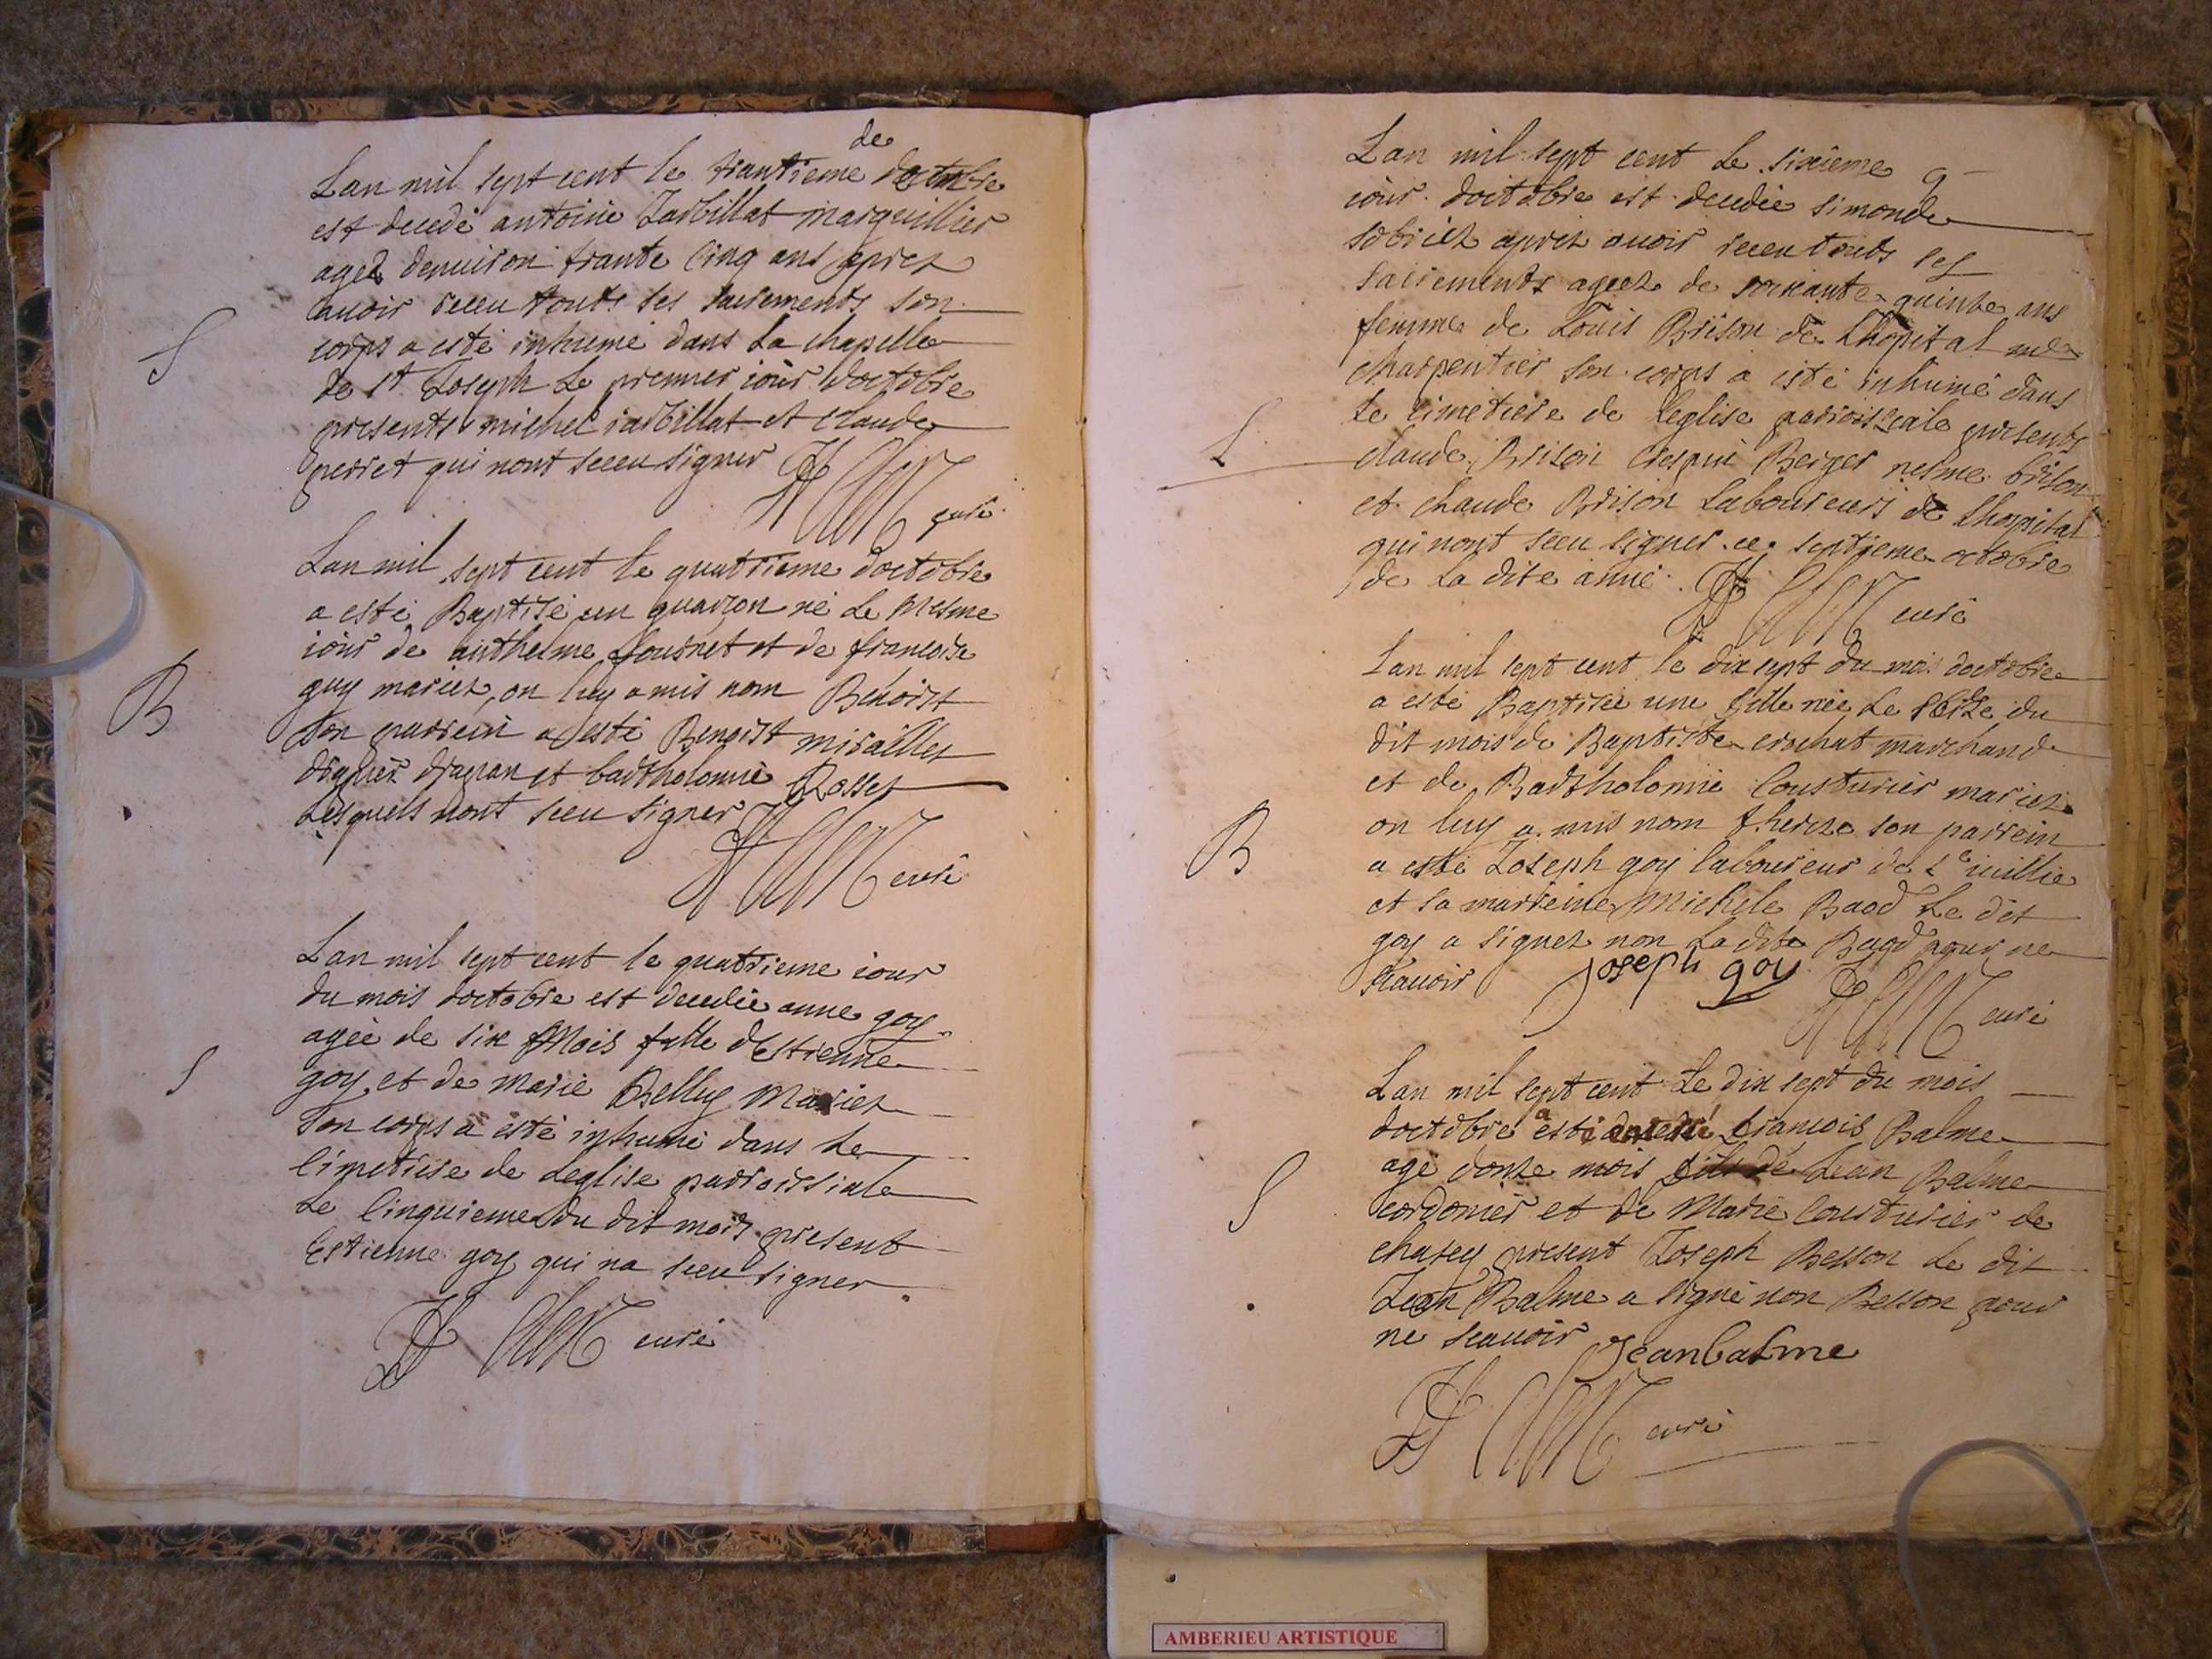 de
Lan mil sept cent le trantieme doctobre
est decedé antoine Jarbillat marguillier
agez denuiron trante cinq ans aprez
auoir receu touts ses sacrements son
S
corps a esté inhumé dans La chapelle
de St Joseph Le premier iour doctobre
presents michel iarbillat et claude
perret qui nont sceeu signer
curé
Lan mil sept cent le quatrieme doctobre
a esté Baptisé un guarçon né Le mesme
iour de anthelme fournet et de francoise
guy mariez, on luy a mis nom Benoist
B
son parrein a esté Benoist mirailler
drapier drapan et bartholomie Rosset
Lesquels nont sceu signer
curé
Lan mil sept cent le quatrieme iour
du mois doctobre est decedée anne goy
agée de six Mois fille dEstienne
S
goy et de Marie Belluy Mariez
son corps a esté inhumé dans Le
cimetiere de Leglise parroissiale
Le cinquieme du dit mois present
Estienne goy qui na sceu signer
curé
Lan mil sept cent Le sixieme
iour doctobre est decedée simonde
sobriez aprez auoir receu touts ses
sacrements agéez de soixante quinze ans
femme de Louis Brison de Lhopital
charpentier son corps a esté inhumé dans
Le cimetiere de Leglise parroissiale presents
S
claude Brison Crespin Berger nesme brison
et claude Brison Laboureurs de Lhospital
qui nont sceu signer ce septieme octobre
de La dite anné
curé
Lan mil sept cent le dix sept du mois doctobre
a esté Baptisée une fille née Le seize du
dit mois de Baptiste crochat marchand
et de Bartholomie Cousturier mariez
on luy a mis nom thereze son parrein
B
a esté Joseph goy laboureur de
et sa marreine Michele Baod Le dit
goy a signez non La dite Baod pour ne
scauoir
joseph goy
curé
Lan mil sept cent Le dix sept du mois
doctobre a esté francois Balme
agé donze mois fils de Jean Balme
S
cordonier et de Marie Cousturier de
chasey present Joseph Besson Le dit
Jean Balme a signé non Besson pour
ne scauoir
Jeanbalme
curé
AMBERIEU ARTISTIQUE